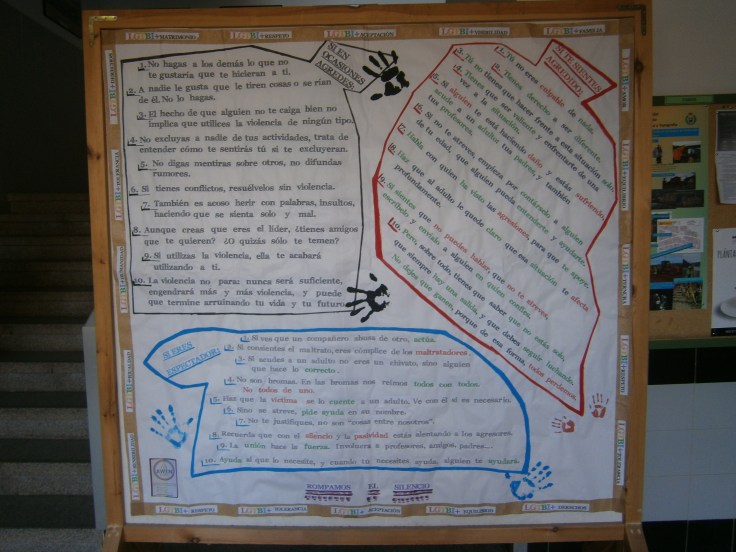 LGTBI+MATRIMONIO
LGTBI+RESPETO
LGTBI+ACEPTACIÓN
LGTBI+
LGTBI+FAMILIA
SI EN
OCASIONES
AGREDES:
1. No hagas a los demás lo que no
te gustaría que te hicieran a ti.
2. A nadie le gusta que le tiren cosas o se rían
de él. No lo hagas.
3- El hecho de que alguien no te caiga bien no
implica que utilices la violencia de ningún tipo.
4- No excluyas a nadie de tus actividades, trata de
entender cómo te sentirás tú si te excluyeran.
5- No digas mentiras sobre otros, no difundas
rumores.
6. Si tienes conflictos, resuélvelos sin violencia.
7- También es acoso herir con palabras, insultos,
haciendo que se sienta solo y mal.
8- Aunque creas que eres el líder, ¿tienes amigos
que te quieren? ¿O quizás sólo te temen?
9- Si utilizas la violencia, ella te acabará
utilizando a ti.
10- La violencia no para: nunca será suficiente,
engendrará más y más violencia, y puede
que termine arruinando tu vida y tu futuro
SI TE SIENTES
AGREDIDO:
1. Tú no eres culpable de nada.
2. Tienes derecho a ser diferente.
3. Tú no tienes que hacer frente a esta situación, solo.
4. Tienes que ser valiente y enfrentarte de una
vez a la situación.
5. Si alguien te está haciendo daño y estás sufriendo,
acude a un adulto: tus padres, y también
tus profesores.
6. Si no te atreves, empieza por contárselo a alguien
de tu edad, que alguien pueda entenderte y ayudarte.
7. Habla con quien ha visto las agresiones, para que te apoye.
8. Haz que al adulto le quede claro que esa situación te afecta
profundamente.
9. Si sientes que no puedes hablar, que no te atreves,
escríbelo y envíalo a alguien en quien confíes.
10. Pero, sobre todo, tienes que saber que no estás solo,
que siempre hay una salida, y que debes seguir luchando.
No dejes que ganen, porque de esa forma, todos perdemos.
SI ERES
ESPECTADOR:
1- Si ves que un compañero abusa de otro, actúa.
2- Si consientes el maltrato, eres cómplice de los maltratadores.
3- Si acudes a un adulto no eres un chivato, sino alguien
que hace lo correcto.
4- No son bromas. En las bromas nos reímos todos con todos.
No todos de uno.
5- Haz que la víctima se lo cuente a un adulto. Ve con él si es necesario.
6- Sino se atreve, pide ayuda en su nombre.
7- No te justifiques, no son "cosas entre nosotros".
8- Recuerda que con el silencio y la pasividad estás alentando a los agresores.
9- La unión hace la fuerza. Involucra a profesores, amigos, padres...
10- Ayuda al que lo necesite, y cuando tú necesites ayuda, alguien te ayudará.
ROMPAMOS EL SILENCIO
LGTBI+ RESPETO
LGTBI+ TOLERANCIA
LGTBI+ ACEPTACIÓN
LGTBI+ EQUILIBRIO
LGTBI+ DERECHOS